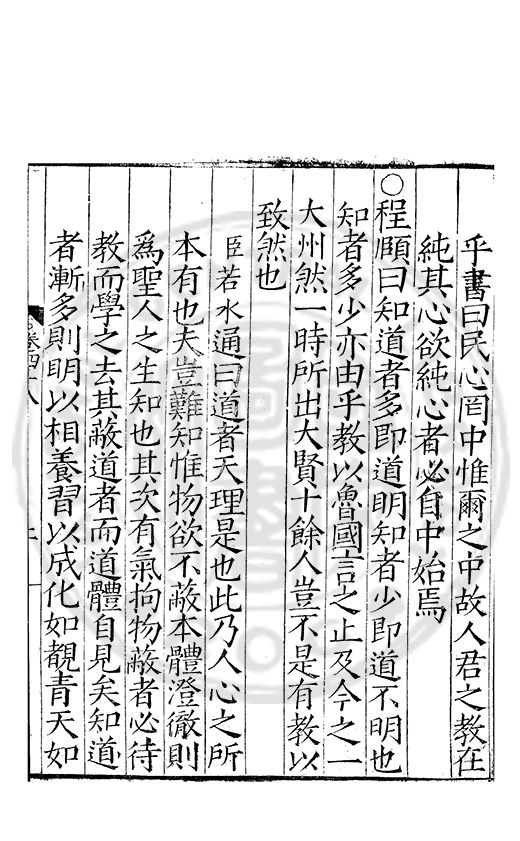 乎書曰民心罔中惟爾之中故人君之教在
純其心欲純心者必自中始焉
○程頥曰知道者多即道明知者少即道不明也
知者多少亦由乎教以魯國言之止及今之一
大州然一時所出大賢十餘人豈不是有教以
致然也
臣若水通曰道者天理是也此乃人心之所
本有也夫豈難知惟物欲不蔽本體澄徹則
爲聖人之生知也其次有氣拘物蔽者必待
教而學之去其蔽道者而道體自見矣知道
者漸多則明以相養習以成化如覩青天如
卷四十八